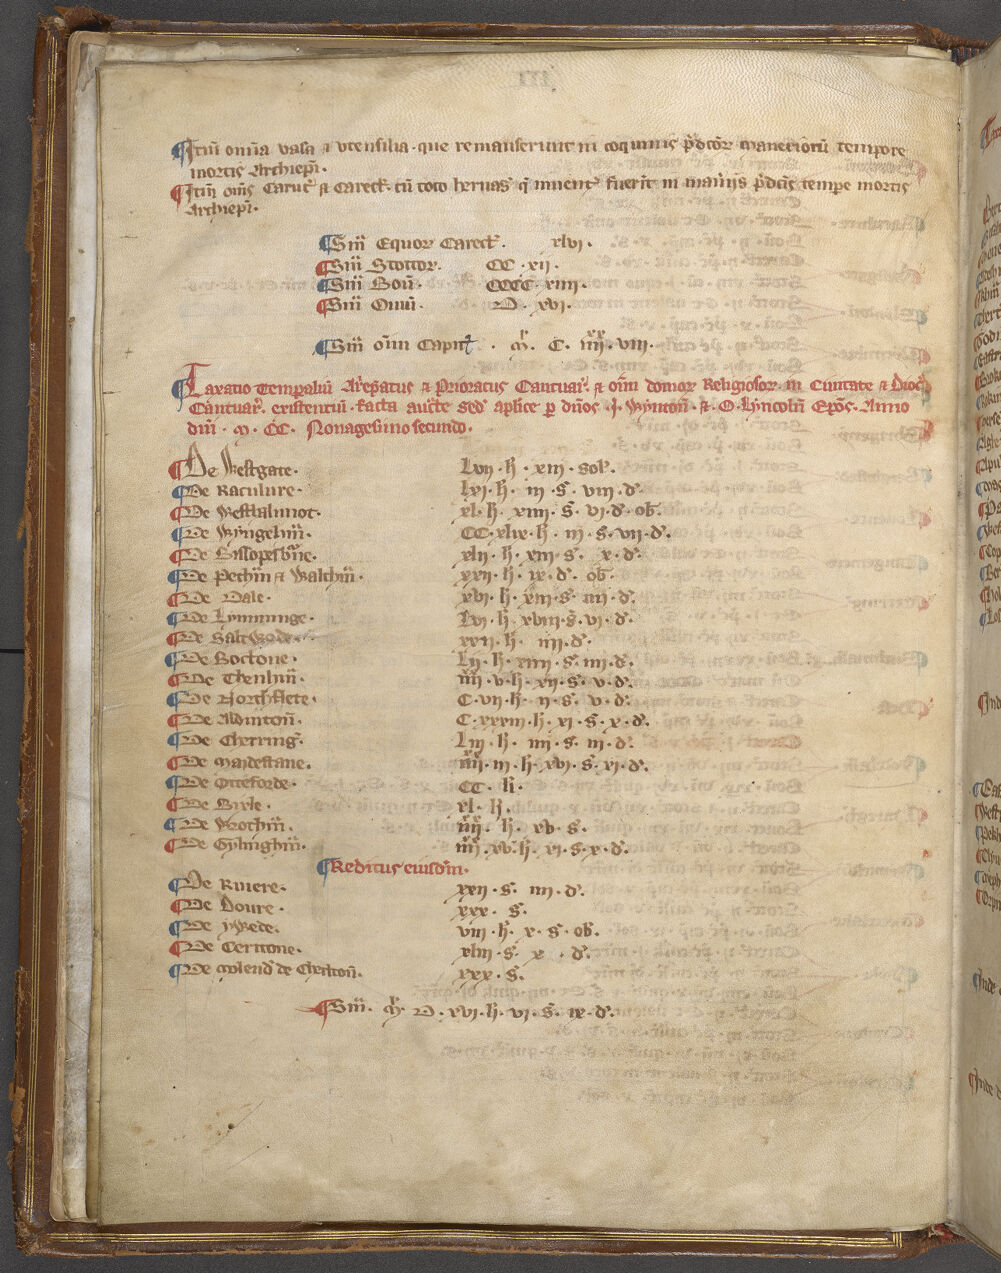 Itm̄ om̄ia vasa ⁊ vtensilia · que remanserunt in coquinis p̄dc̄or maneriorū tempore
mortis Archiepī ·
Itm̄ om̄s Caruc̄ ⁊ Carect̄ · cū toto hernas' q̄ inuent' fuerīt in man̄ijs p̄dc̄is tempe mortis
Archiepī ·
Sm̄ Equor Carect̄ · xlvi ·
Sm̄ Stottor · CC · xij ·
Sm̄ Boū · CCCC · xiiij ·
Sm̄ Ouiū · D · xvi ·
Sm̄ oīm Capit · M · C · iiijxx · viij ·
Taxatio Temporaliū Archiepatus ⁊ Prioratus Cantuar' ⁊ oīm domor Religiosor · in Ciuitate ⁊ Dioc̄
Cantuar' existentiū · facta auct̄e sed' aplice p dn̄os · J · Wynton̄ · ⁊ · O · Lyncoln̄ Ep̄os · Anno
dn̄i · M · CC · Nonagesimo secundo ·
De Westgate · Lvij · łi · xiij · sol' ·
De Raculure · Lvj · łi · iij · s' · viij · d' ·
De Westhalimot · xl · łi · xiiij · s' · vj · d' · ob' ·
De Wyngehm̄ · CC · xlix · łi · iij · s' · vij · d' ·
De Bissopesb'ne · xlij · łi · xiij · s' · x · d' ·
De Pechm̄ ⁊ Walthm̄ · xxij · łi · ix · d' · ob' ·
De Dale · xvj · łi · xiij · s' · iiij · d' ·
De Lymminge · Lvj · łi · xviij · s' · vj · d' ·
De Saltwode · xxvj · łi · iiij · d' ·
De Boctone · Lij · łi · xiiij · s' · iiij · d' ·
De Thenhm̄ · iiijxx · v · łi · xij · s' · v · d' ·
De Northflete · C · vij · łi · ij · s' · v · d' ·
De Aldinton̄ · C · xxxiij · łi · xj · s' · x · d' ·
De Cherring' · Liij · łi · iiij · s' · iij · d' ·
De Maidestane · iiijxx · iij · łi · xvj · s' · xj · d' ·
De Otteforde · CC · łi ·
De Bixle · xl · łi ·
De Wrothm̄ · iiijxx · łi · xv · s' ·
De Gylinghm̄ · iiijxx · xv · łi · xj · s' · x · d' ·
Redditus eiusdm̄ ·
De Riuere · xxij · s' · iiij · d' ·
De Doure · xxx · s' ·
De yWede · viij · łi · x · s' · ob' ·
De Cerntone · xliij · s' · x · d' ·
De Molend' de Cherton̄ · xxx · s' ·
Sm̄ · M · D · xvj · łi · vj · s' · ix · d' ·